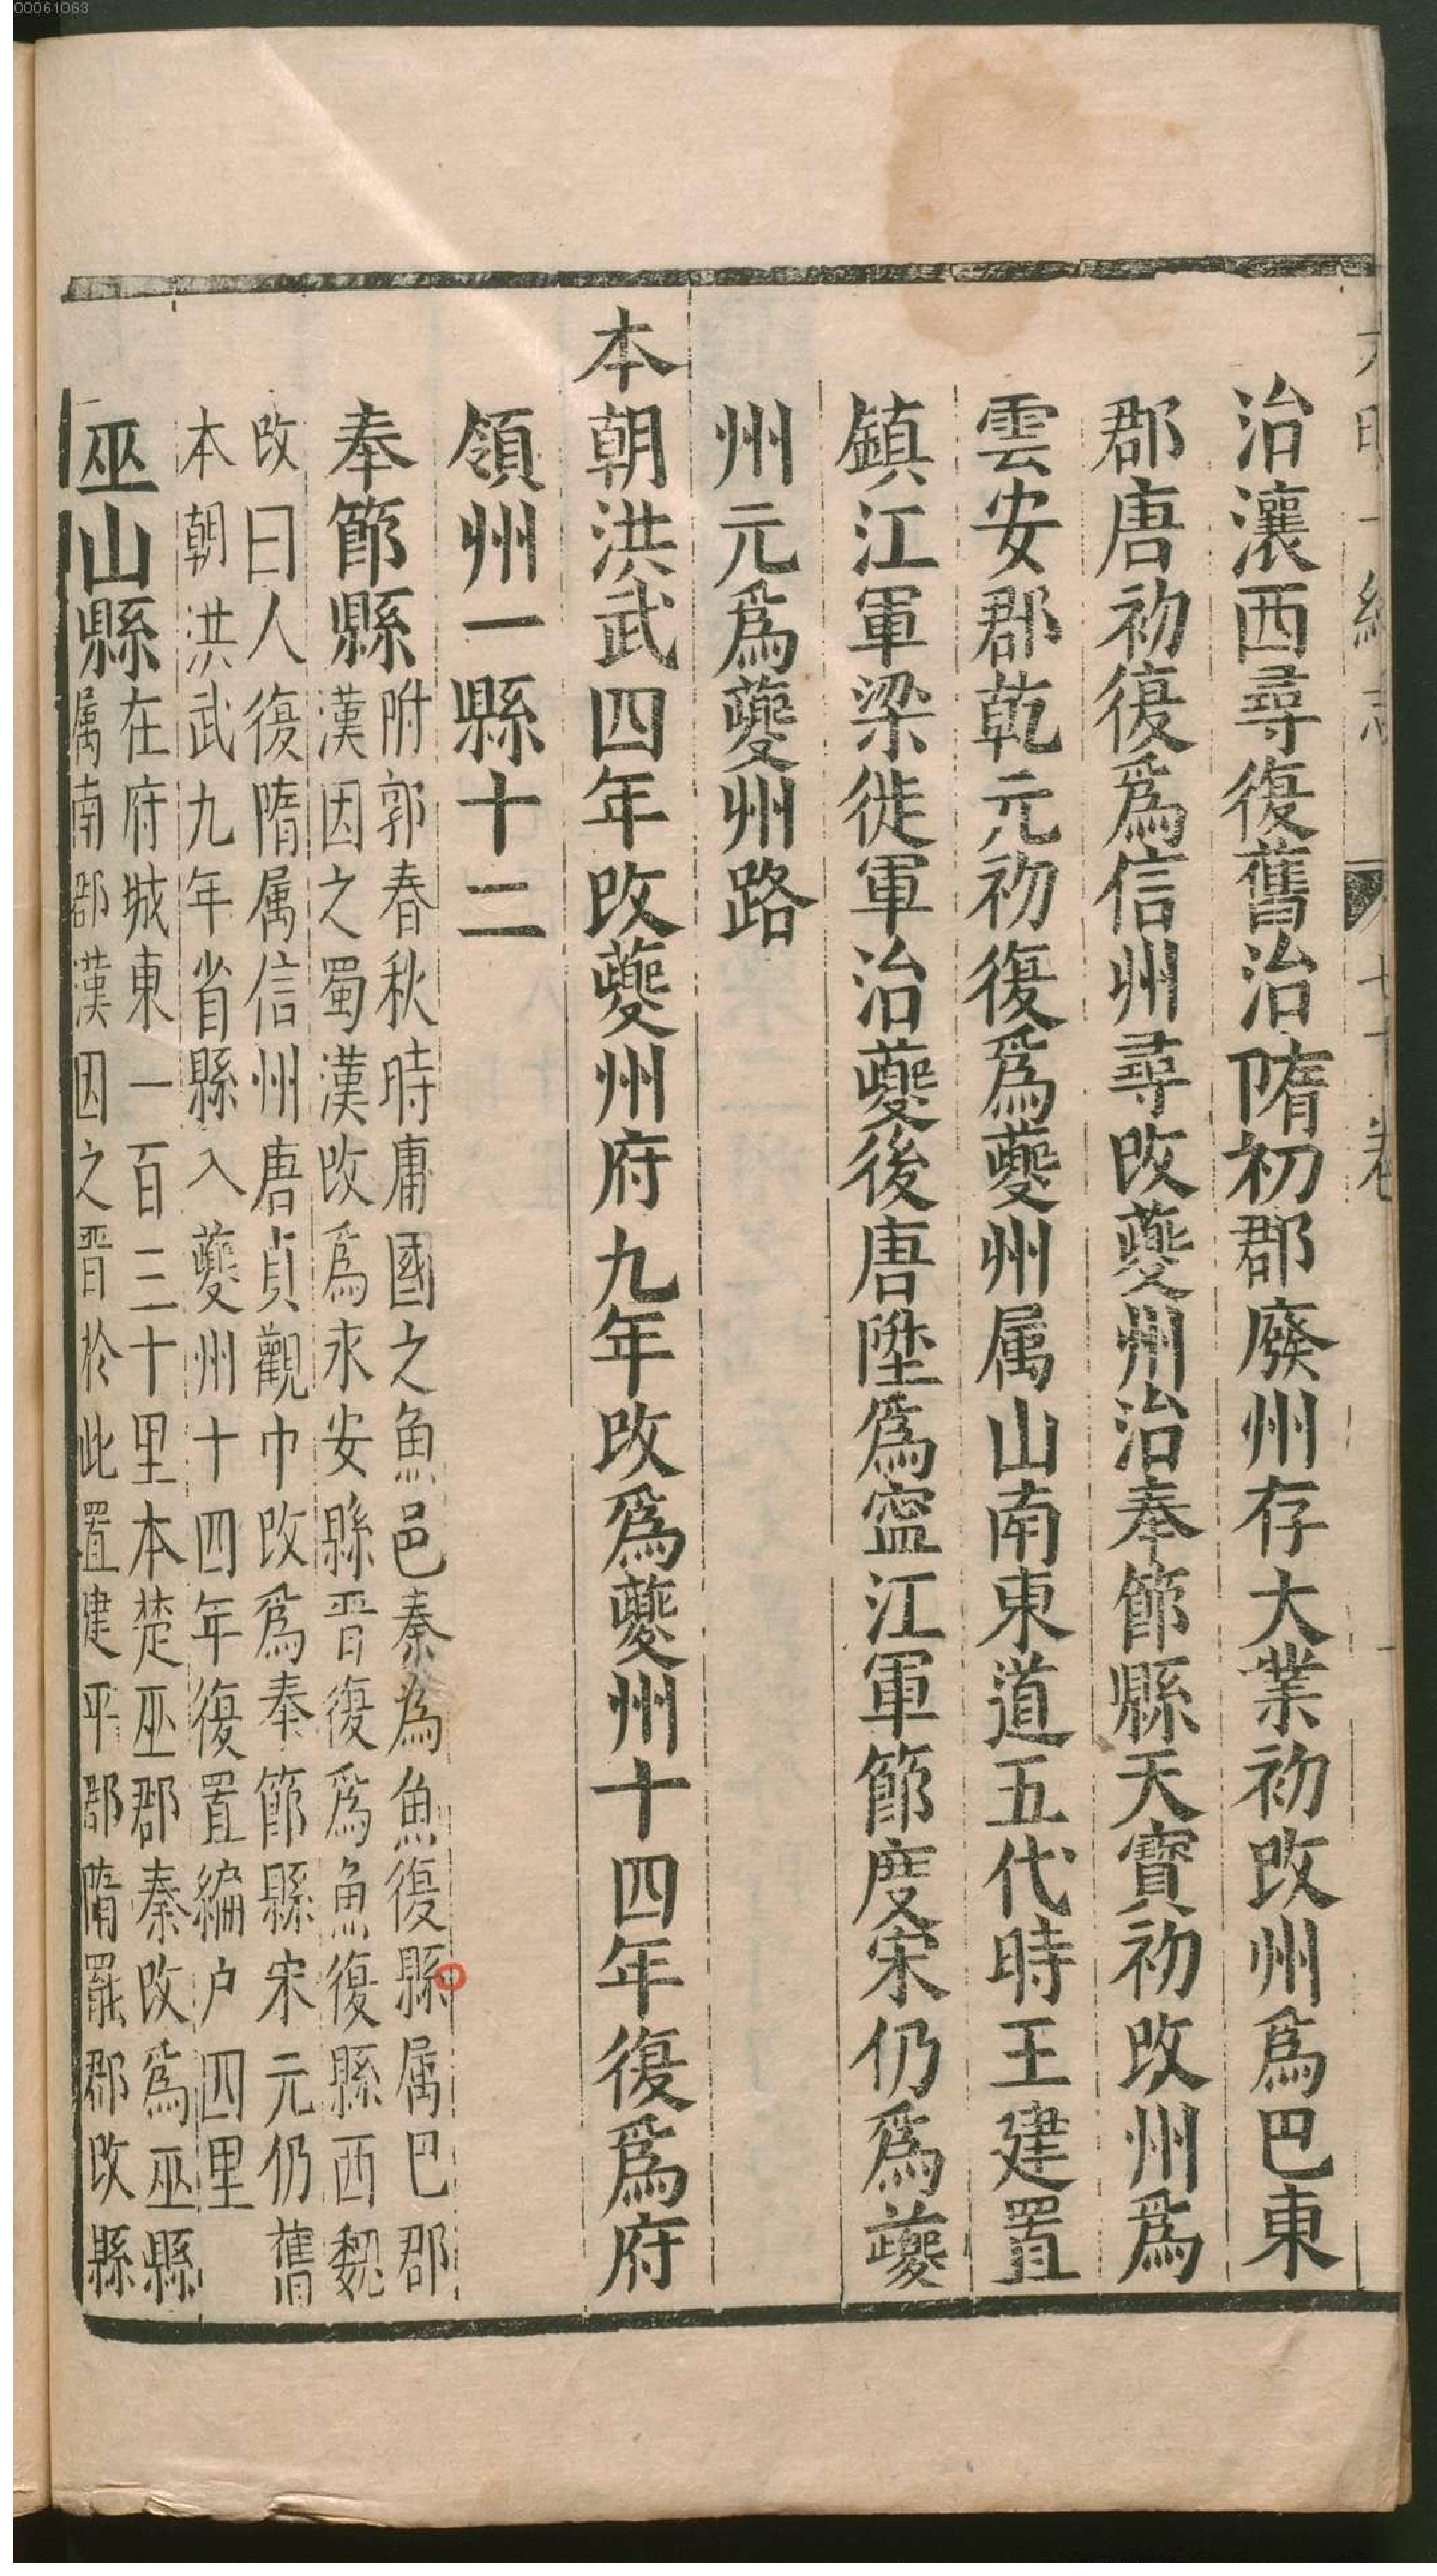 00061063
治瀼西尋復舊治隋初郡廢州存大業初改州爲巴東
郡唐初復爲信州尋改夔州治奉節縣天寶初改州爲
雲安郡乾元初復爲夔州属山南東道五代時王建置
鎮江軍梁徙軍治夔後唐陞爲寧江軍節度宋仍爲夔
州元爲夔州路
本朝洪武四年改夔州府九年改爲夔州十四年復爲府
領州一縣十二
奉節縣
附郭春秋時庸國之魚邑秦為魚復縣属巴郡
漢因之蜀漢改爲永安縣晋復爲魚復縣西魏
改曰人復隋属信州唐貞觀中改爲奉節縣宋元仍舊
本朝洪武九年省縣入夔州十四年復置編户四里
巫山縣
在府城東一百三十里本楚巫郡秦改爲巫縣
属南郡漢因之晋於此置建平郡隋罷郡改縣